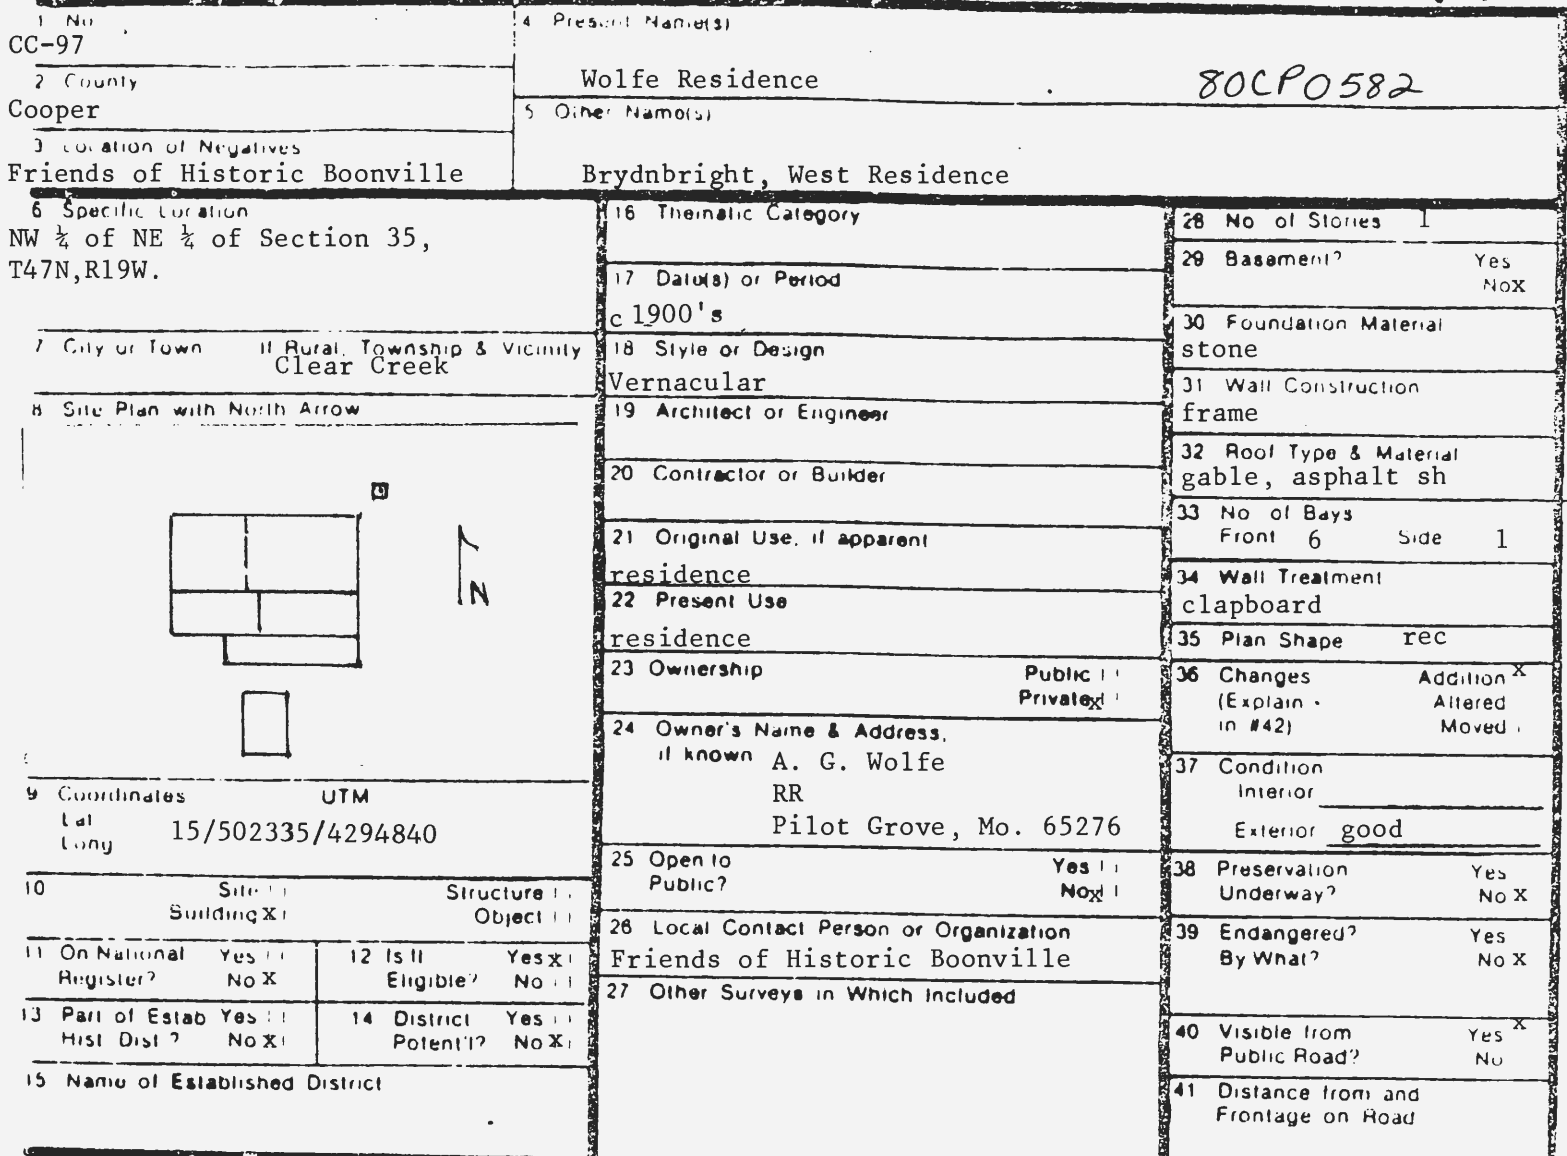 1 No
CC-97
2 County
Cooper
3 Location of Negatives
Friends of Historic Boonville
4 Present Name(s)
Wolfe Residence
80CP0582
5 Other Name(s)
Brydnbright, West Residence
6 Specific Location
NW ¼ of NE ¼ of Section 35,
T47N,R19W.
7 City or Town If Rural, Township & Vicinity
Clear Creek
8 Site Plan with North Arrow
N
9 Coordinates UTM
Lat
Long 15/502335/4294840
10 Site Structure
Building X Object
11 On National Register? Yes No X
12 Is It Eligible? Yes x No
13 Part of Estab Hist Dist? Yes No X
14 District Potent'l? Yes No X
15 Name of Established District
16 Thematic Category
17 Date(s) or Period
c 1900's
18 Style or Design
Vernacular
19 Architect or Engineer
20 Contractor or Builder
21 Original Use, if apparent
residence
22 Present Use
residence
23 Ownership Public
Private x
24 Owner's Name & Address,
if known A. G. Wolfe
RR
Pilot Grove, Mo. 65276
25 Open to Yes
Public? No x
26 Local Contact Person or Organization
Friends of Historic Boonville
27 Other Surveys in Which Included
28 No of Stories 1
29 Basement? Yes
No X
30 Foundation Material
stone
31 Wall Construction
frame
32 Roof Type & Material
gable, asphalt sh
33 No of Bays
Front 6 Side 1
34 Wall Treatment
clapboard
35 Plan Shape rec
36 Changes Addition X
(Explain Altered
in #42) Moved
37 Condition
Interior
Exterior good
38 Preservation Yes
Underway? No X
39 Endangered? Yes
By What? No X
40 Visible from Yes X
Public Road? No
41 Distance from and
Frontage on Road